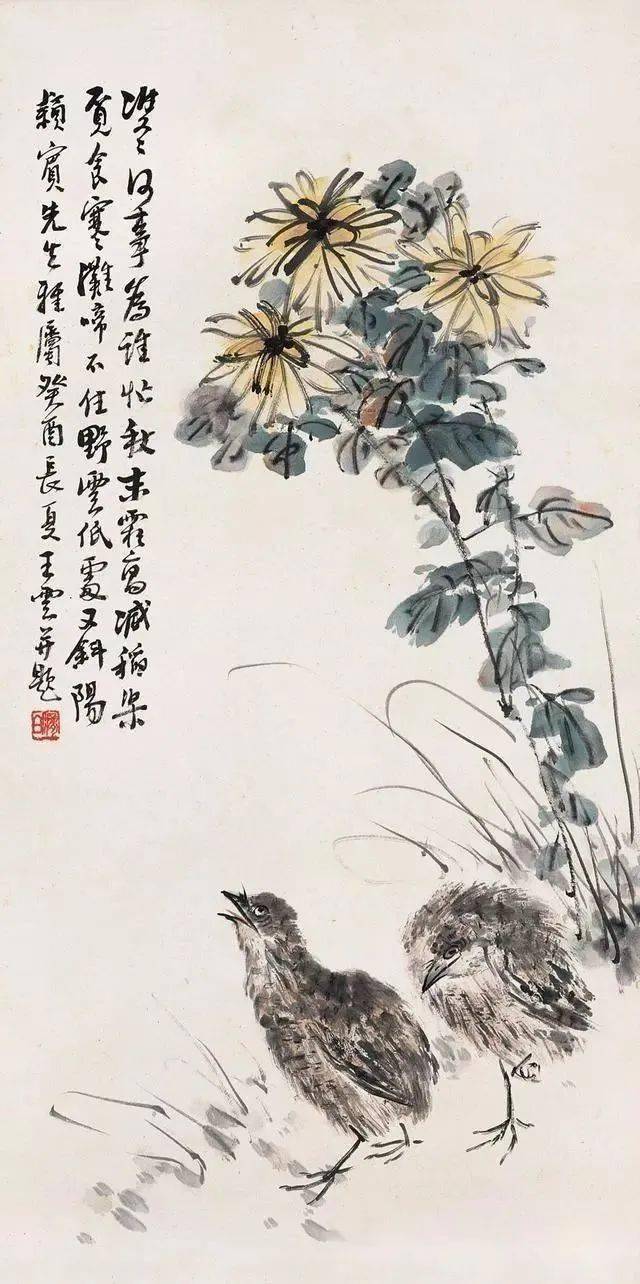 雙〻何事為誰忙秋末霜高減稻粱
覓食寒灘啼不住野雲低處又斜陽
穎賓先生雅屬癸酉長夏王雲并題